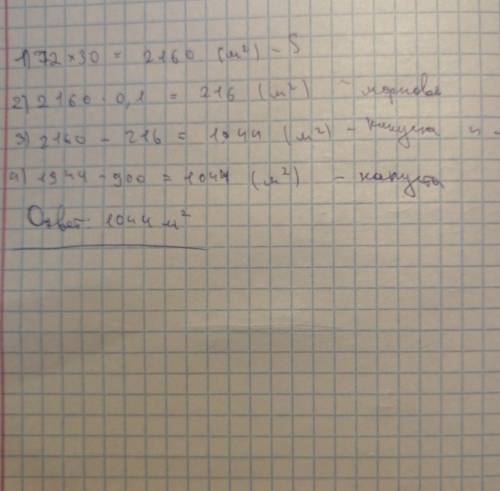 1) 72 × 30 = 2160 (м²) - S
2) 2160 · 0,1 = 216 (м²) - морковь
3) 2160 - 216 = 1944 (м²) - капуста и
4) 1944 - 900 = 1044 (м²) - капуста
Ответ 1044 м²